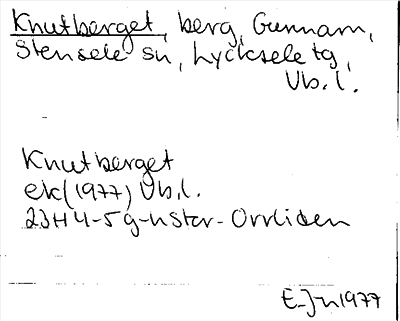 Knutberget, berg, Gunnarn,
Stensele sn, Lycksele tg,
Vb.l.
Knutberget
ek(1977) Vb.l.
23H 4-5 g-h Stor-Orrliden
E-Jn 1977